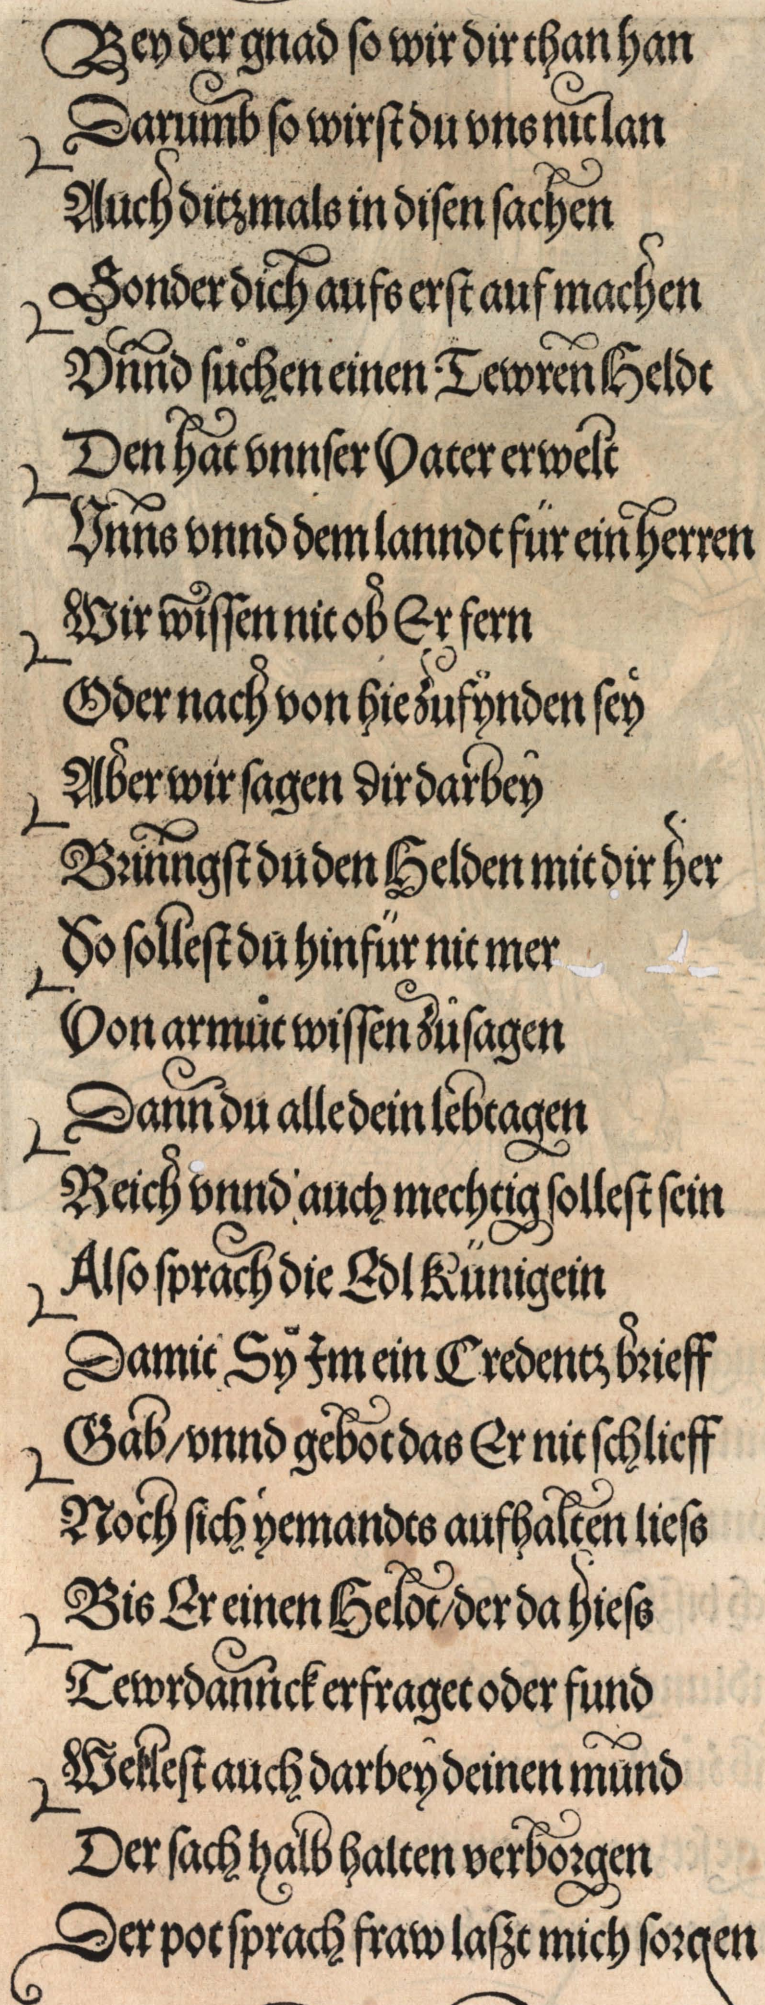 Bey der gnad so wir dir than han
Darumb so wirst du vns nit lan
Auch ditzmals in disen sachen
Sonder dich aufs erst auf machen
Vnnd sůchen einen Tewren Heldt
Den hat vnnser Vater erwelt
Vnns vnnd dem lanndt für ein herren
Wir wissen nit ob Er fern
Oder nach von hie zufÿnden seÿ
Aber wir sagen dir darbeÿ
Brinngst du den Helden mit dir her
So sollest du hinfür nit mer
Von armůt wissen zůsagen
Dann du alle dein lebtagen
Reich vnnd auch mechtig sollest sein
Also sprach die Edl Künigein
Damit Sÿ Im ein Credentz brieff
Gab/vnnd gebot das Er nit schlieff
Noch sich ÿemandts aufhalten liess
Bis Er einen Heldt/der da hiess
Tewrdannck erfraget oder fund
Wellest auch darbeÿ deinen mund
Der sach halb halten verborgen
Der pot sprach fraw laszt mich sorgen